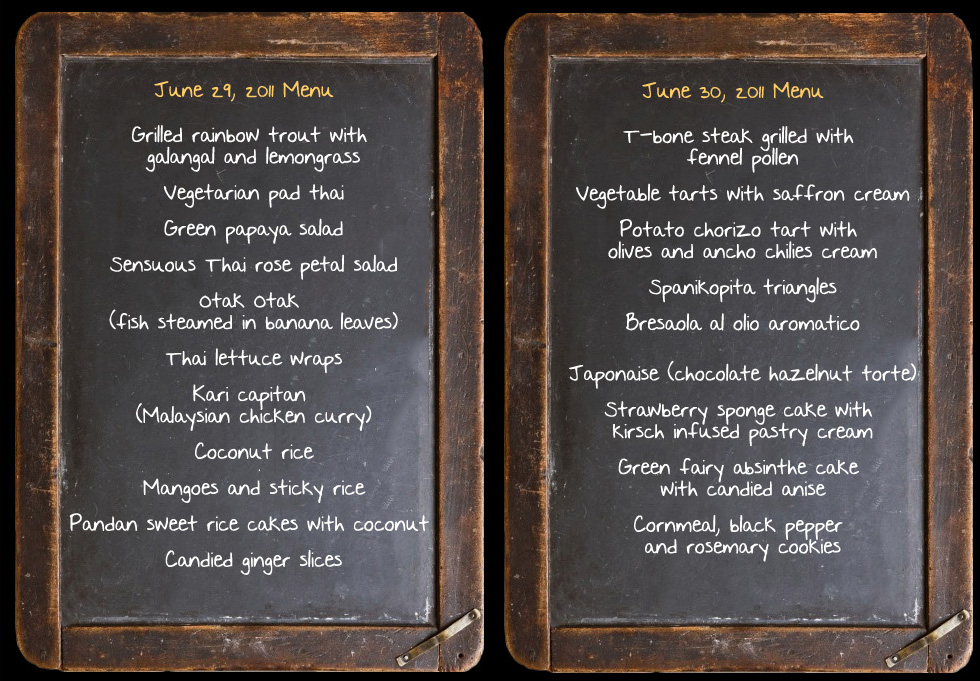 June 29, 2011 Menu
Grilled rainbow trout with
galangal and lemongrass
Vegetarian pad thai
Green papaya salad
Sensuous Thai rose petal salad
Otak Otak
(fish steamed in banana leaves)
Thai lettuce wraps
Kari capitan
(Malaysian chicken curry)
Coconut rice
Mangoes and sticky rice
Pandan sweet rice cakes with coconut
Candied ginger slices
June 30, 2011 Menu
T-bone steak grilled with
fennel pollen
Vegetable tarts with saffron cream
Potato chorizo tart with
olives and ancho chilies cream
Spanikopita triangles
Bresaola al olio aromatico
Japonaise (chocolate hazelnut torte)
Strawberry sponge cake with
kirsch infused pastry cream
Green fairy absinthe cake
with candied anise
Cornmeal, black pepper
and rosemary cookies